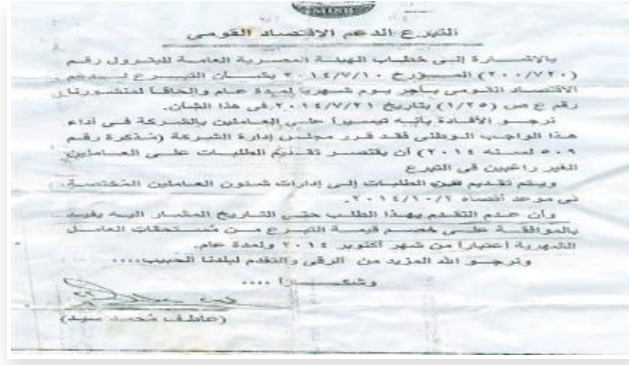 التبرع لدعم الاقتصاد القومى
بالاشارة إلى خطاب الهيئة المصرية العامة للبترول رقم
(٢٠٠/٧٢٠) المؤرخ ٢٠١٤/٧/١٠ بشأن التبرع لدعم
الاقتصاد القومى بأجر يوم شهرياً لمدة عام والحاقاً لمنشورنا
رقم ع ص (١/٢٥) بتاريخ ٢٠١٤/٧/٢١ فى هذا الشأن.
نرجو الأفادة بأنه تيسيراً على العاملين بالشركة فى أداء
هذا الواجب الوطنى فقد قرر مجلس إدارة الشركة (مذكرة رقم
٥٠٩ لسنه ٢٠١٤) أن يقتصر تقديم الطلبات على العاملين
الغير راغبين فى التبرع
ويتم تقديم الطلبات إلى إدارات شئون العاملين المختصة
فى موعد أقصاه ٢٠١٤/١٠/١.
وأن عدم التقدم بهذا الطلب حتى التاريخ المشار اليه يفيد
بالموافقة على خصم قيمة التبرع من مستحقات العامل
الشهرية أعتباراً من شهر أكتوبر ٢٠١٤ ولمدة عام.
ونرجو الله المزيد من الرقى والتقدم لبلدنا الحبيب....
وشكراً ....
(عاطف محمد سيد)